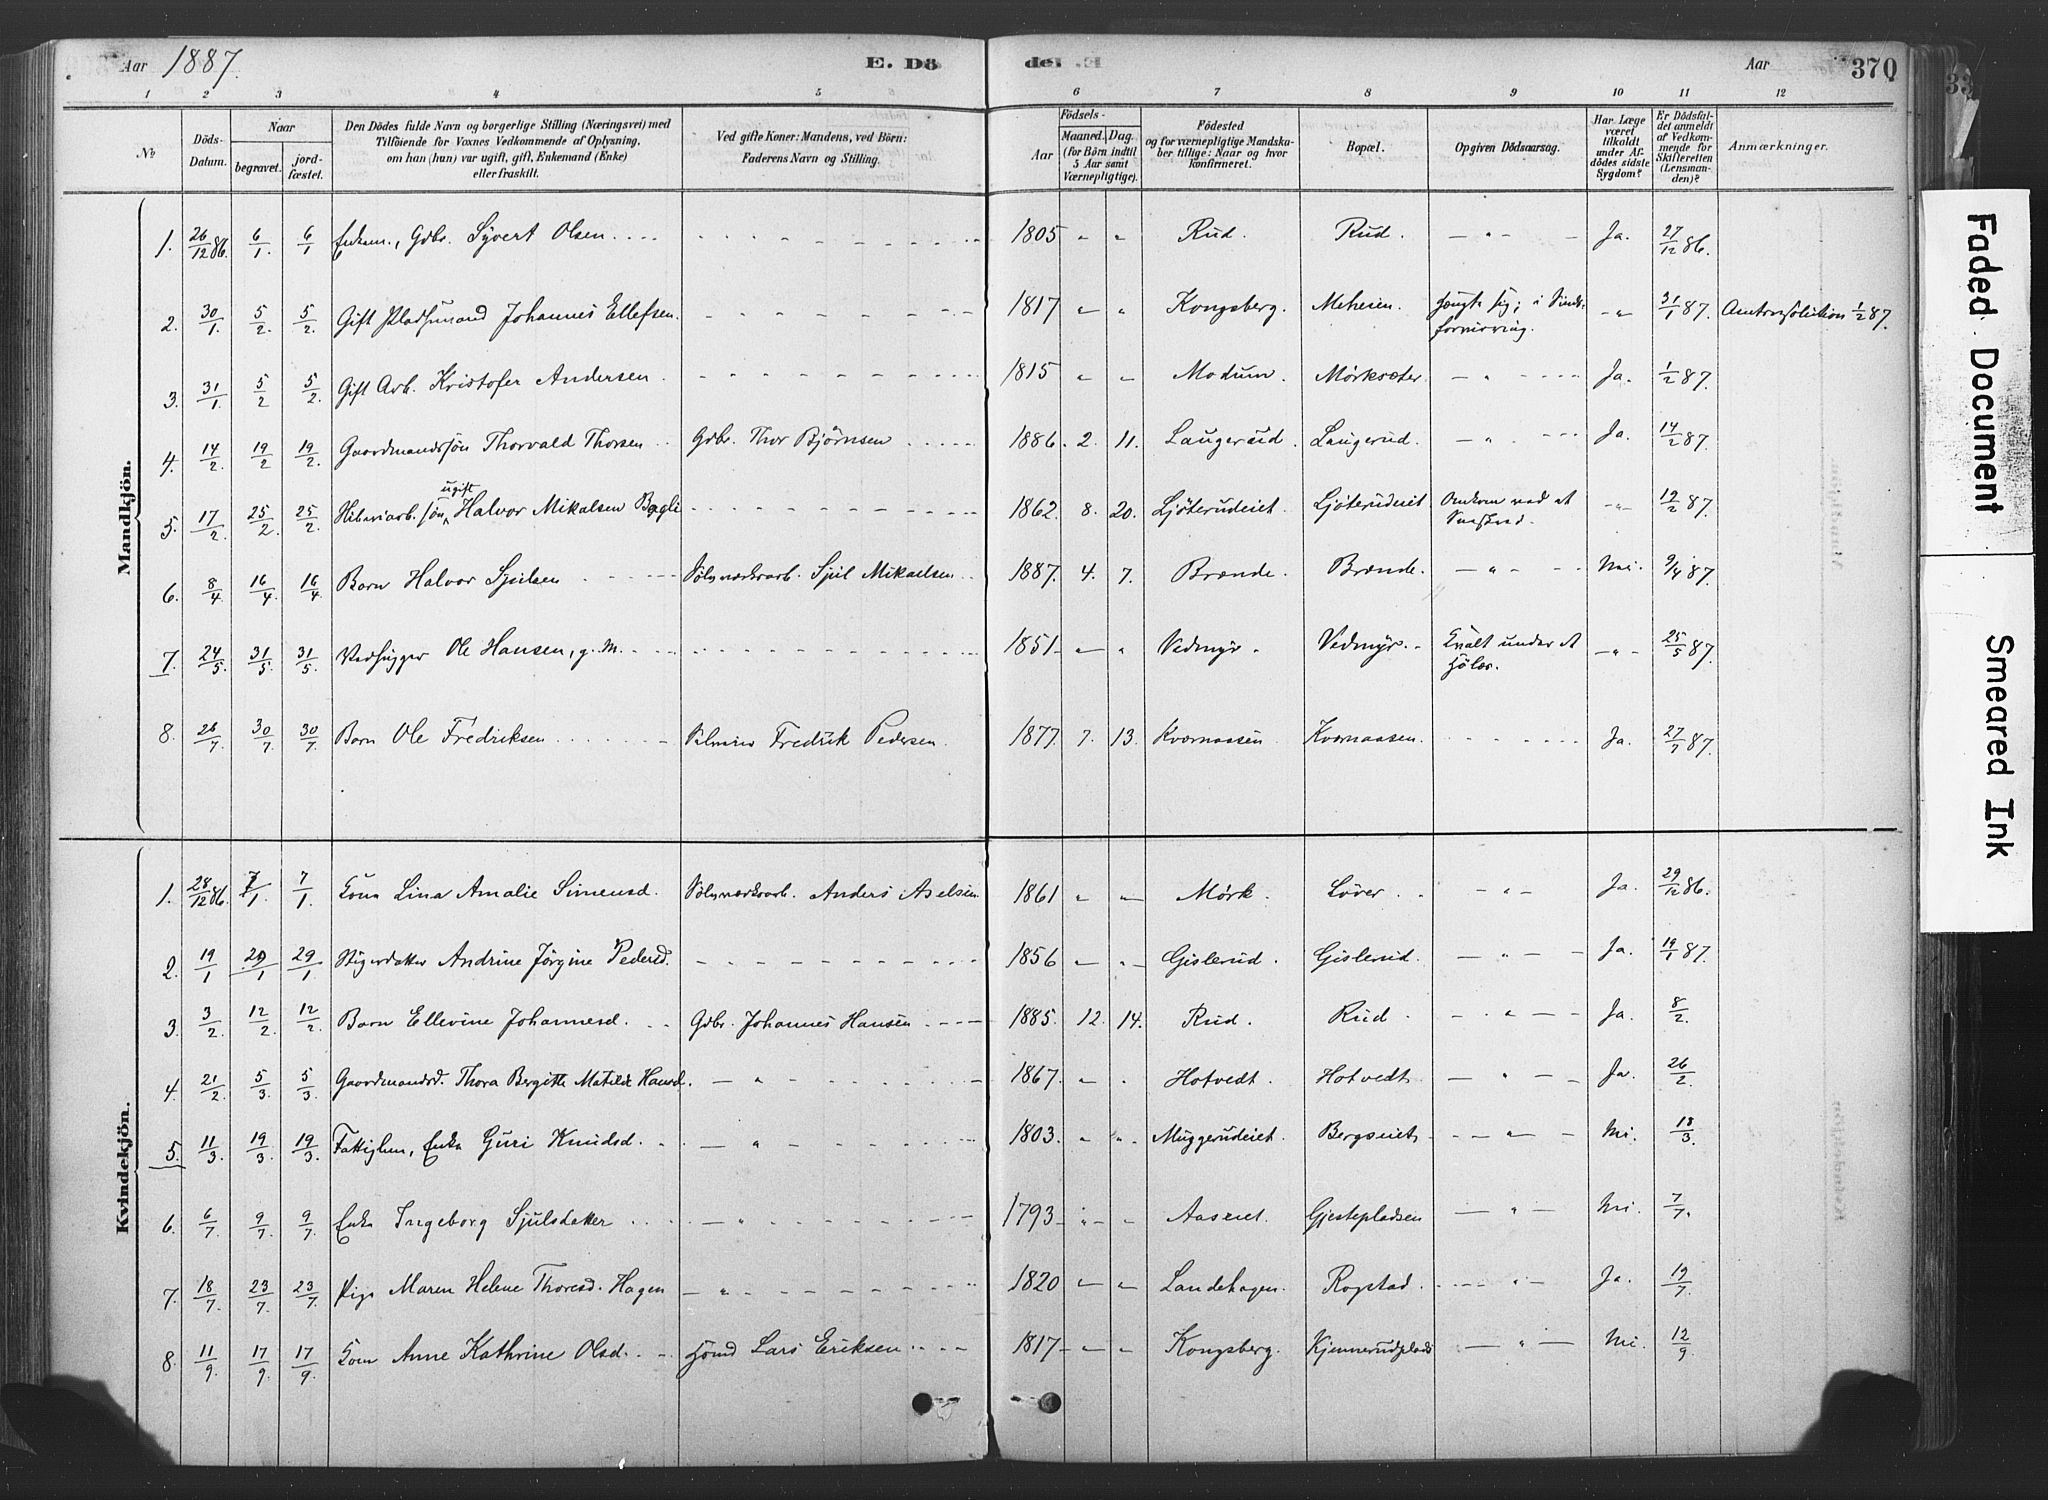 Aar 1887. E. Dö
del E. Aar 370
1 2 3 4 5 6 7 8 9 10 11 12
No
Döds-Datum.
Naar
begravet.
jord-fæstet.
Den Dödes fulde Navn og borgerlige Stilling (Næringsvei) med
Tilföiende for Voxnes Vedkommende af Oplysning,
om han (hun) var ugift, gift, Enkemand (Enke)
eller fraskilt.
Ved gifte Koner: Mandens, ved Börn:
Faderens Navn og Stilling.
Födsels-
Aar
Maaned. Dag.
(for Börn indtil
5 Aar samt
Værnepligtige).
Födested
og for værnepligtige Mandska-
ber tillige: Naar og hvor
konfirmeret.
Bopæl.
Opgiven Dödsaarsag.
Har Læge
været
tilkaldt
under Af-
dödes sidste
Sygdom?
Er Dödsfal-
det anmeldt
af Vedkom-
mende for
Skifteretten
(Lensman-
den)?
Anmærkninger.
Mandkjön.
1. 26/12 86. 6/1 6/1 Enkem., Gdbr. Syvert Olsen 1805 " " Rud. Rud. - " - Ja. 27/12 86.
2. 30/1. 5/2. 5/2. Gift Pladsmand Johannes Ellefsen. 1817 " " Kongsberg. Meheien. hængte sig; i Sinds- forvirring. " 31/1 87. Amtsresolution 1/2 87.
3. 31/1. 5/2 5/2. Gift Arb. Kristofer Andersen. 1815 " " Modum. Mørksæter - " - Ja. 1/2 87.
4. 14/2. 19/2 19/2. Gaardmandssøn Thorvald Thorsen Gdbr. Thor Bjørnsen 1886. 2. 11. Laugerud. Laugerud. - " - Ja. 14/2 87.
5. 17/2. 25/2. 25/2. søn ugift Halvor Mikalsen Bøgli 1862. 8. 20. Ljøterudeiet. Ljøterudeiet Omkom ved et - " - 19/2 87.
6. 8/4 16/4. 16/4. Barn Halvor Sjulsen Sølvverksarb. Sjul Mikaelsen 1887. 4. 7. Brænde. Brænde. - " - Nei. 9/4 87.
7. 24/5. 31/5. 31/5. Vedhugger Ole Hansen, g. M. 1851 " " Vedmyr. Vedmyr. Kvalt under et - " - 25/5 87.
8. 26/7. 30/7. 30/7. Barn Ole Fredriksen Fredrik Pedersen. 1877 7. 13. Kværnaasen Kværnaasen. Ja. 27/7 87.
Kvindekjön.
1. 28/12 86. 7/1 7/1. Kone Lina Amalie Simensd. Sølvverksarb. Anders Axelsen. 1861 " " Mørk. Løver. - " - Ja. 29/12 86.
2. 19/1 29/1 29/1 Stigerdatter Andrine Jørgine Pedersd. 1856 " " Gislerud. Gislerud. - " - Ja. 19/1 87.
3. 3/2. 12/2. 12/2 Barn Ellevine Johannesd. Gdbr. Johannes Hansen 1885. 12. 14. Rud. Rud. - " - Ja. 8/2.
4. 21/2. 5/3. 5/3. Gaardmandsd. Thora Bergitte Matilde Hansd. - " - 1867. " " Hotvedt. Hotvedt. - " - Ja. 26/2.
5. 11/3. 19/3. 19/3. Fattiglem, Enke Guri Knudsd. - " - 1803. " " Muggerudeiet. Bergseiet. - " - Nei. 18/3.
6. 6/7. 9/7. 9/7. Enke Ingeborg Sjulsdatter - " - 1793 " " Aaseiet. Gjestepladsen - " - Nei. 7/7.
7. 18/7. 23/7. 23/7. Pige Maren Helene Thoresd. Hagen - " - 1820 " " Landehagen. Rogstad. - " - Ja. 19/7.
8. 11/9. 17/9. 17/9 Kone Anne Kathrine Olsd. Lars Eriksen 1817 " " Kongsberg. Kjennerudplads - " - Nei. 12/9.
Faded Document
Smeared Ink